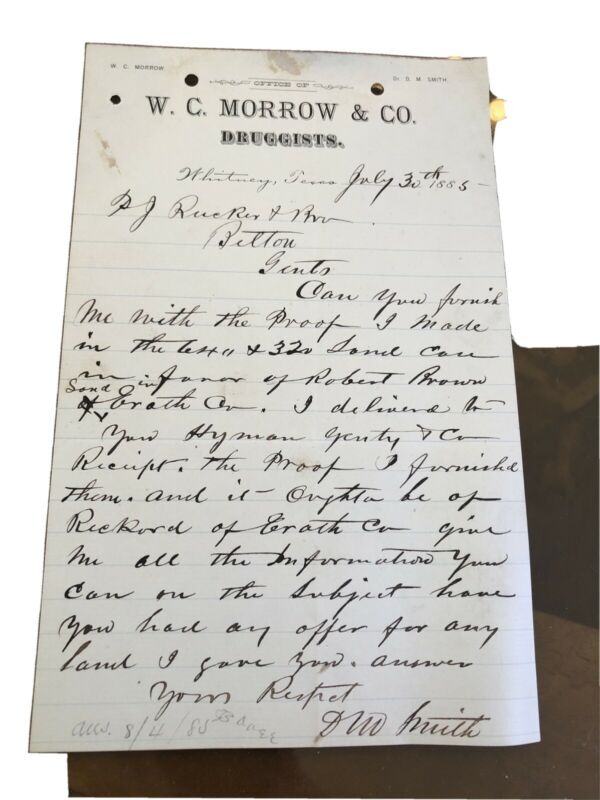 W. C. MORROW. Dr. D. M. SMITH.
OFFICE OF
W. C. MORROW & CO.
DRUGGISTS.
Whitney, Texas July 30th 1885
P J Rucker & Bro
Belton
Gents
Can you furnish
Me with the Proof I Made
in the 640 & 320 Land case
in favor of Robert Brown
Land in
Erath Co. I deliverd to
you Hyman Genty & Co
Receipt. the Proof I furnishd
them. and it Oughta be of
Reckord of Erath Co give
Me all the Information You
Can on the Subject have
You had any offer for any
land I gave you. answer
Yours Respct
D M Smith
Ans. 8/4/85